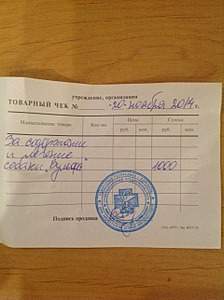 учреждение, организация
ТОВАРНЫЙ ЧЕК № 20 ноября 2014 г.
Наименование товара Кол-во Цена Сумма
руб. коп. руб. коп.
За содержание
и лечение
собаки 1000
Подпись продавца